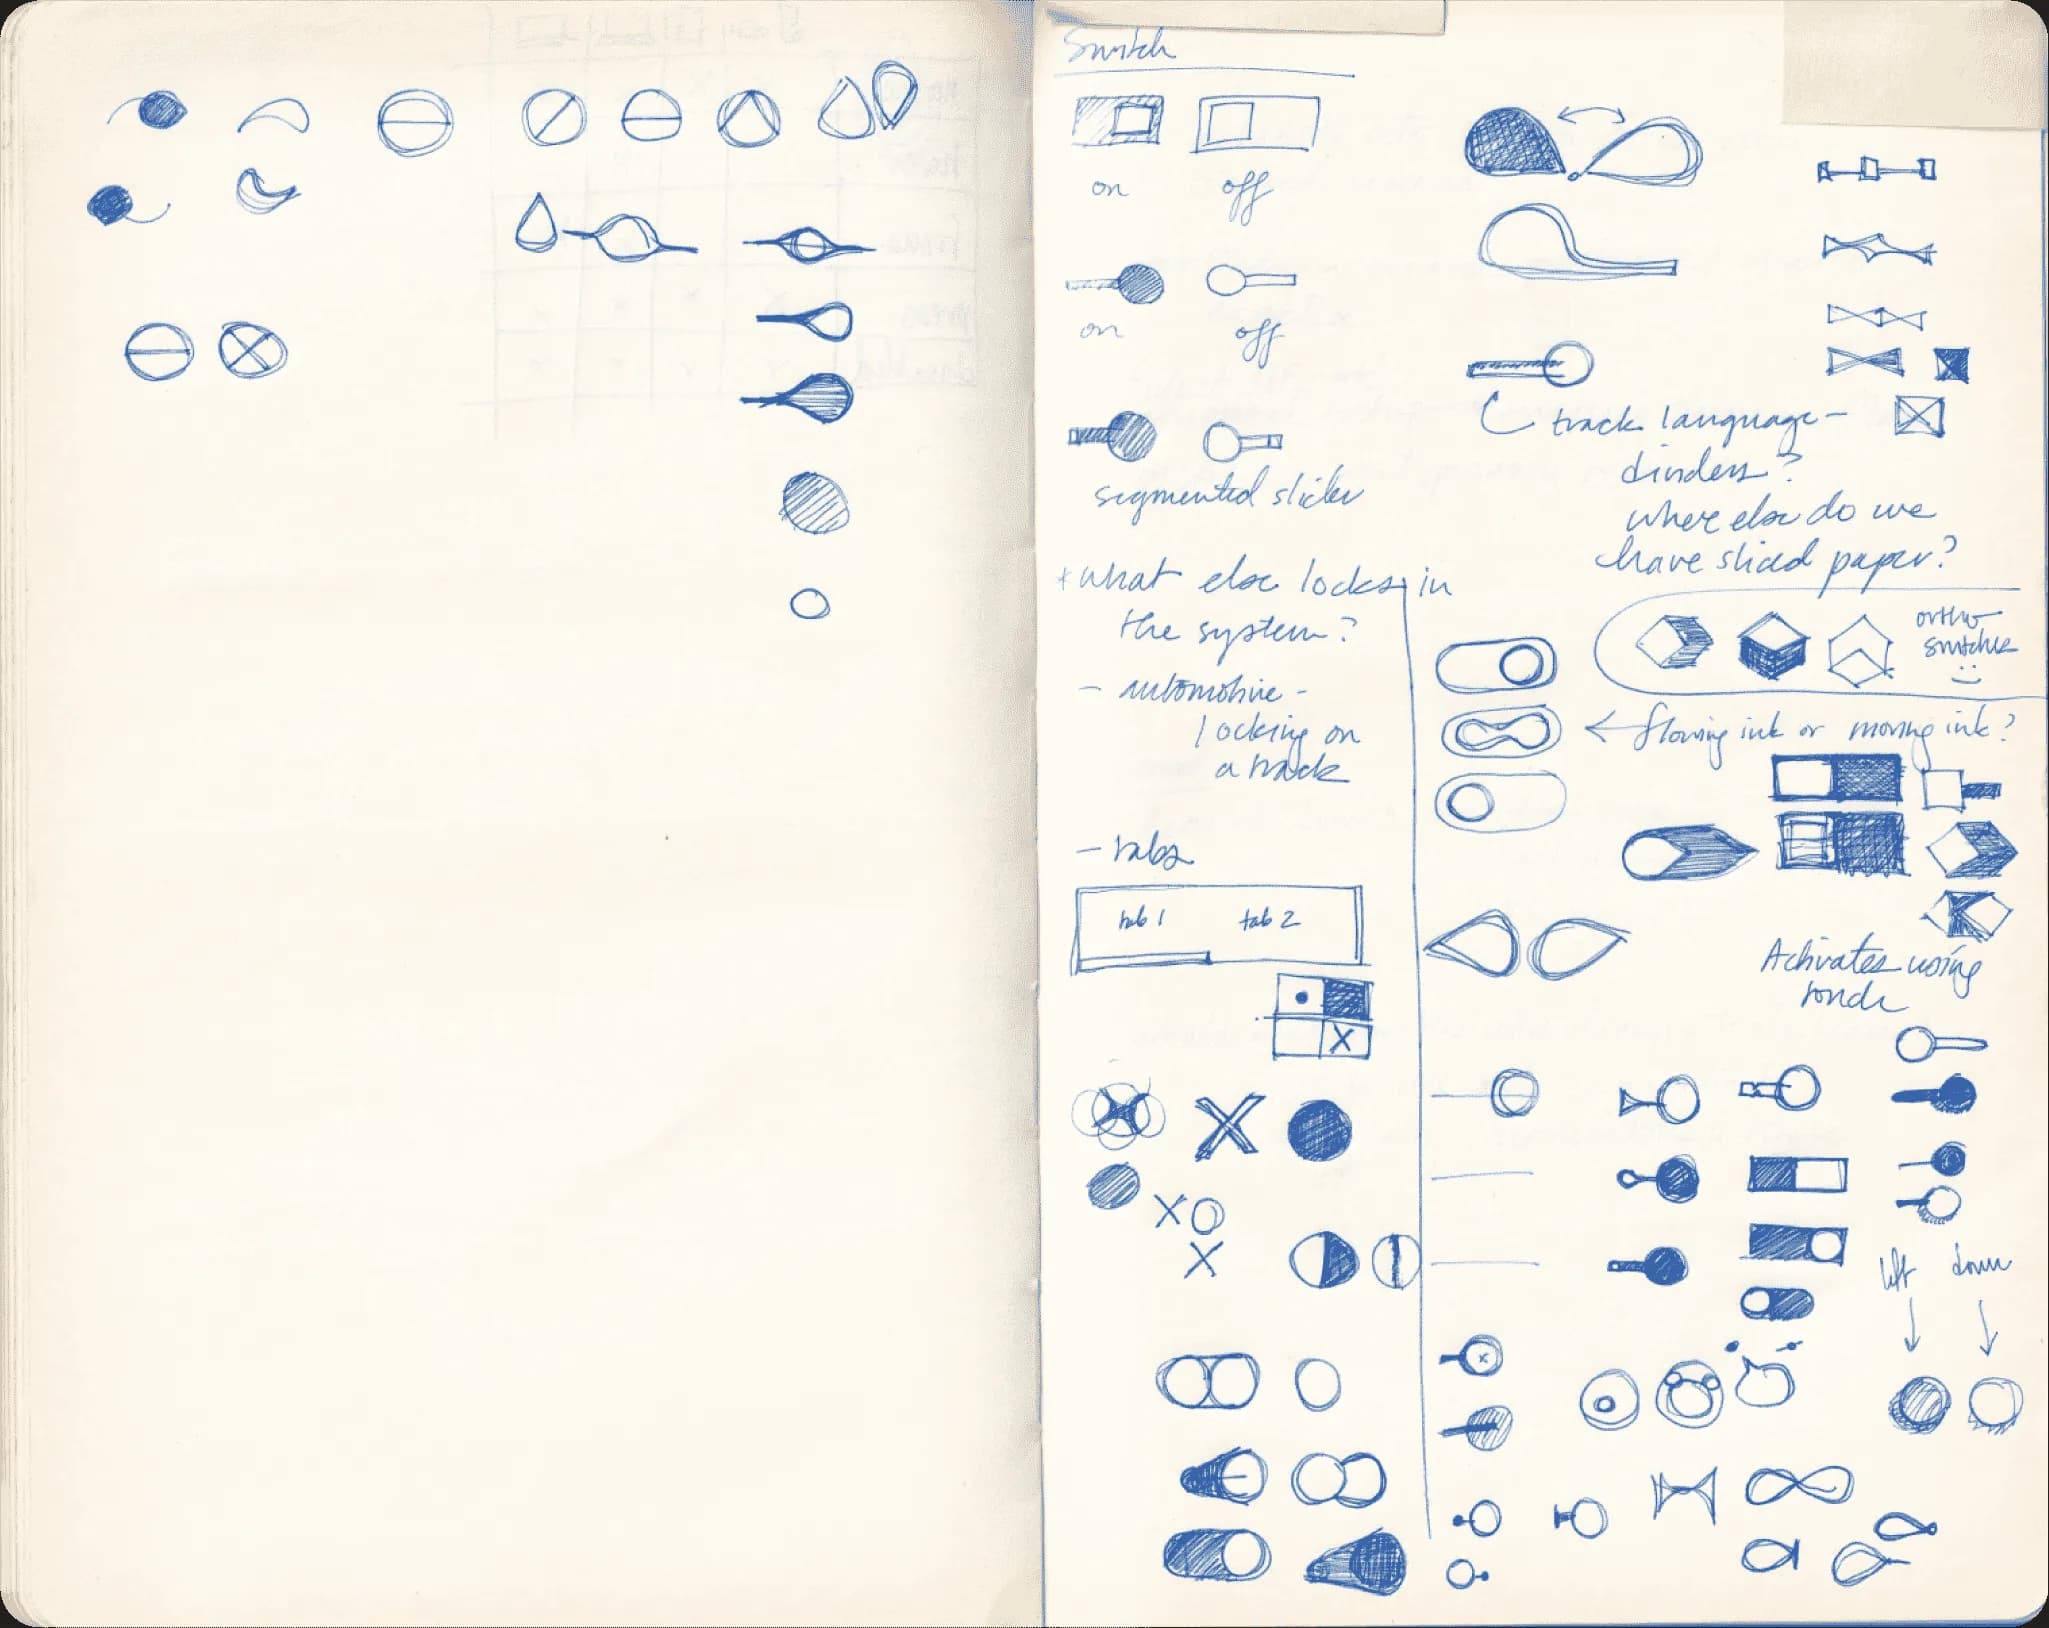 Switch
on off
on off
segmented slider
track language -
dividers?
where else do we
have sliced paper?
* what else locks in
the system?
- automotive -
locking on
a track
ortho
switches
← flowing ink or moving ink?
- tabs
tab 1 tab 2
Activates using
touch
X
X O
X
left down